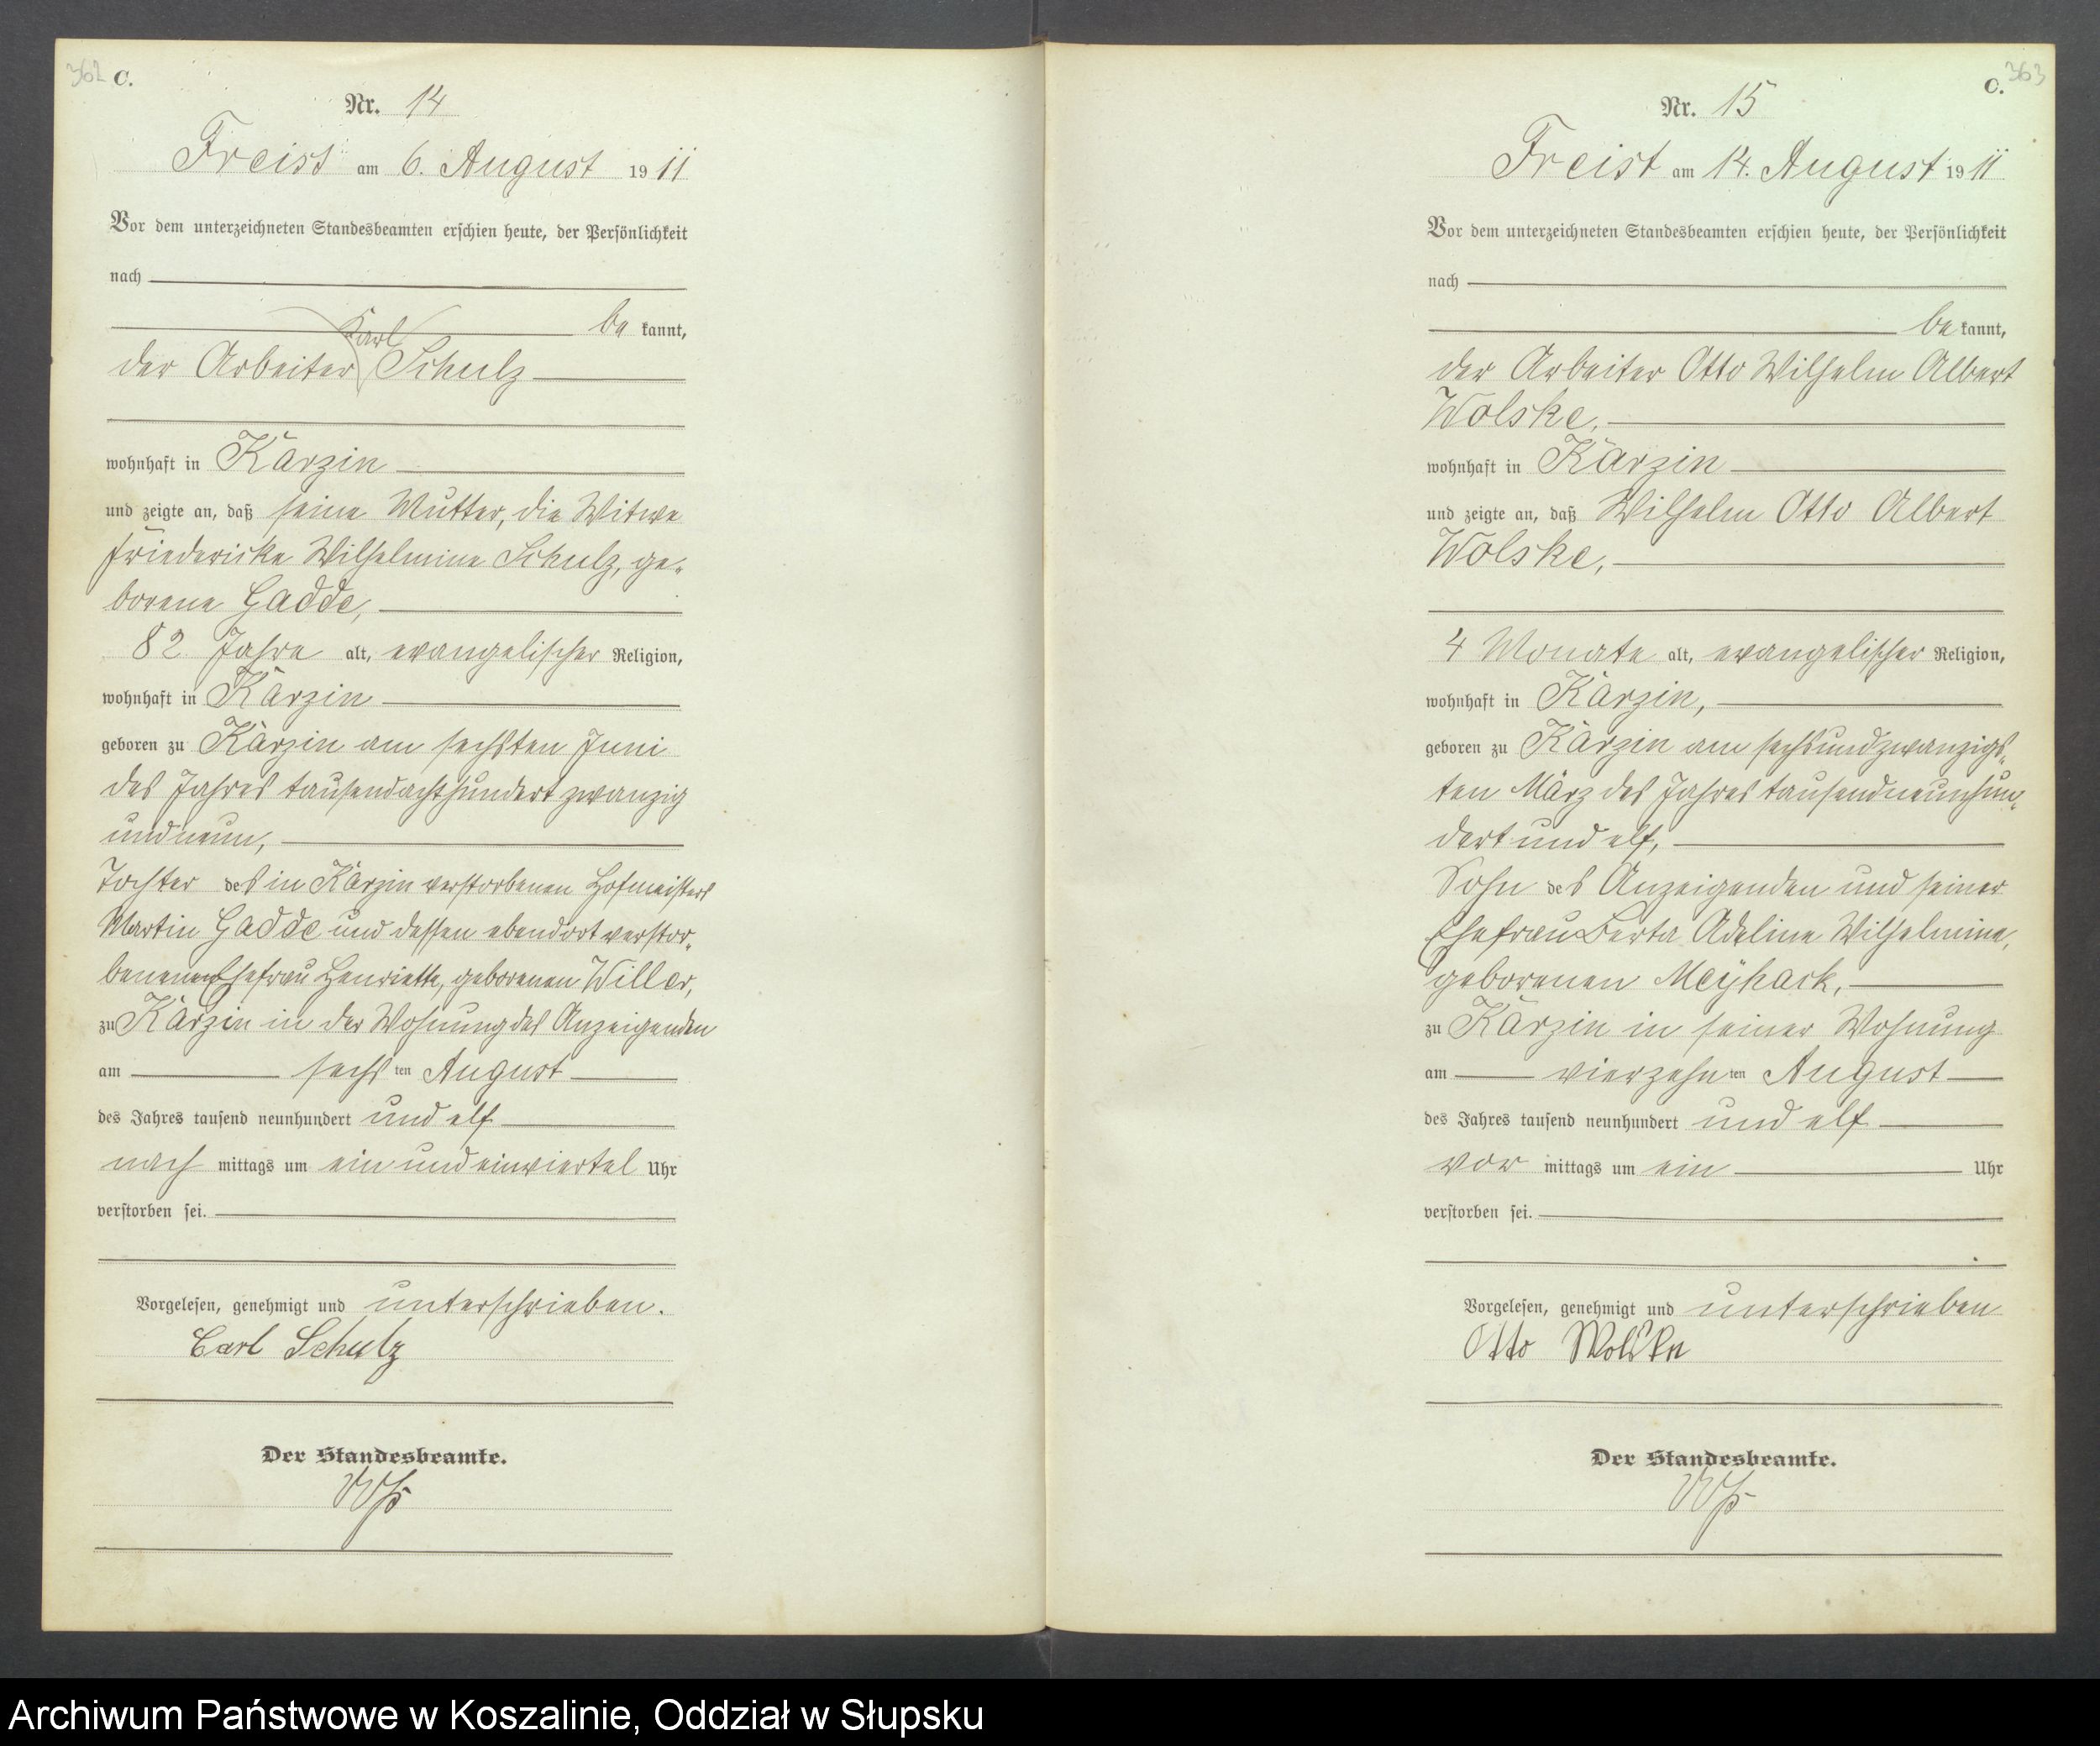 362 C.
Nr. 14
Freist am 6. August 1911
Vor dem unterzeichneten Standesbeamten erschien heute, der Persönlichkeit
nach
be kannt,
Karl
der Arbeiter Schulz
wohnhaft in Karzin
und zeigte an, daß seine Mutter, die Witwe
Friedericke Wilhelmine Schulz, ge-
borene Gadde,
82 Jahre alt, evangelischer Religion,
wohnhaft in Karzin
geboren zu Karzin am sechsten Juni
des Jahres tausendachthundert zwanzig
und neun,
Tochter des in Karzin verstorbenen Hofmeisters
Martin Gadde und dessen ebendort verstor-
benenen Ehefrau Henriette, geborenen Willer,
zu Karzin in der Wohnung des Anzeigenden
am sechsten August
des Jahres tausend neunhundert und elf
nach mittags um ein und einviertel Uhr
verstorben sei.
Vorgelesen, genehmigt und unterschrieben.
Carl Schulz
Der Standesbeamte.
C. 363
Nr. 15
Freist am 14. August 1911
Vor dem unterzeichneten Standesbeamten erschien heute, der Persönlichkeit
nach
be kannt,
der Arbeiter Otto Wilhelm Albert
Wolske,
wohnhaft in Karzin
und zeigte an, daß Wilhelm Otto Albert
Wolske,
4 Monate alt, evangelischer Religion,
wohnhaft in Karzin,
geboren zu Karzin am sechsundzwanzigs-
ten März des Jahres tausendneunhun-
dert und elf,
Sohn des Anzeigenden und seiner
Ehefrau Berta Adeline Wilhelmine,
geborenen Meyhack,
zu Karzin in seiner Wohnung
am vierzehnten August
des Jahres tausend neunhundert und elf
vor mittags um ein Uhr
verstorben sei.
Vorgelesen, genehmigt und unterschrieben
Otto Wolske
Der Standesbeamte.
Archiwum Państwowe w Koszalinie, Oddział w Słupsku